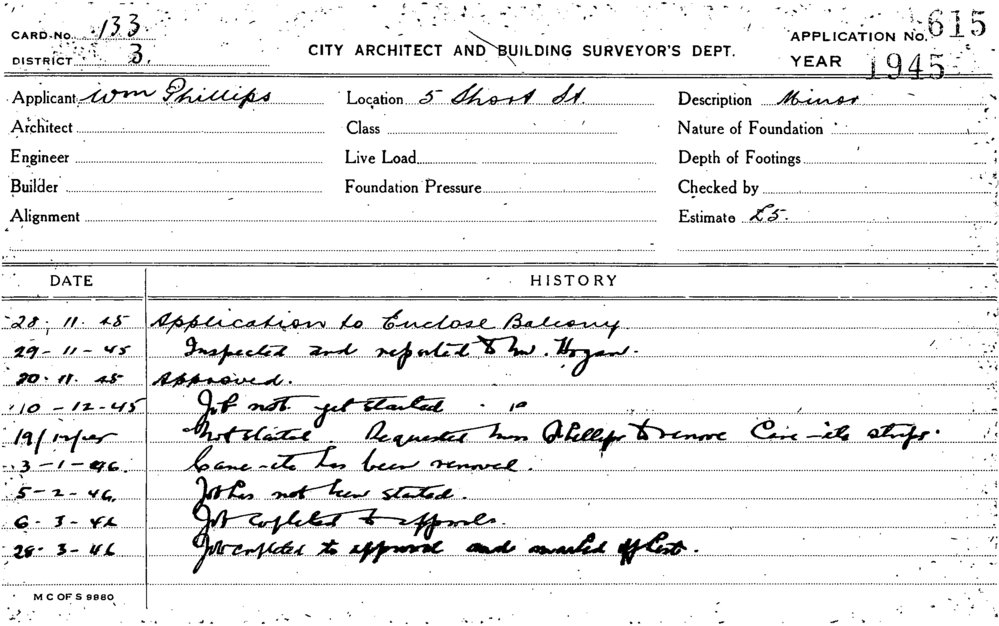 CARD No. 133
DISTRICT 3.
CITY ARCHITECT AND BUILDING SURVEYOR'S DEPT.
APPLICATION No. 615
YEAR 1945
Applicant Wm Phillips Location 5 Short St. Description Minor
Architect Class Nature of Foundation
Engineer Live Load Depth of Footings
Builder Foundation Pressure Checked by
Alignment Estimate £5.
DATE HISTORY
28. 11. 45 Application to Enclose Balcony
29-11-45 Inspected and reported to Mr. Hogan.
30. 11. 45 Approved.
10-12-45 Job not yet started
19/12/45 Not started Requested Phillips to remove Cane-ite strips.
3-1-46. Cane-ite has been removed.
5-2-46. Job has not been started.
6-3-46 Job completed to approval.
28-3-46 Job completed to approval and marked off list.
M C OF S 9880